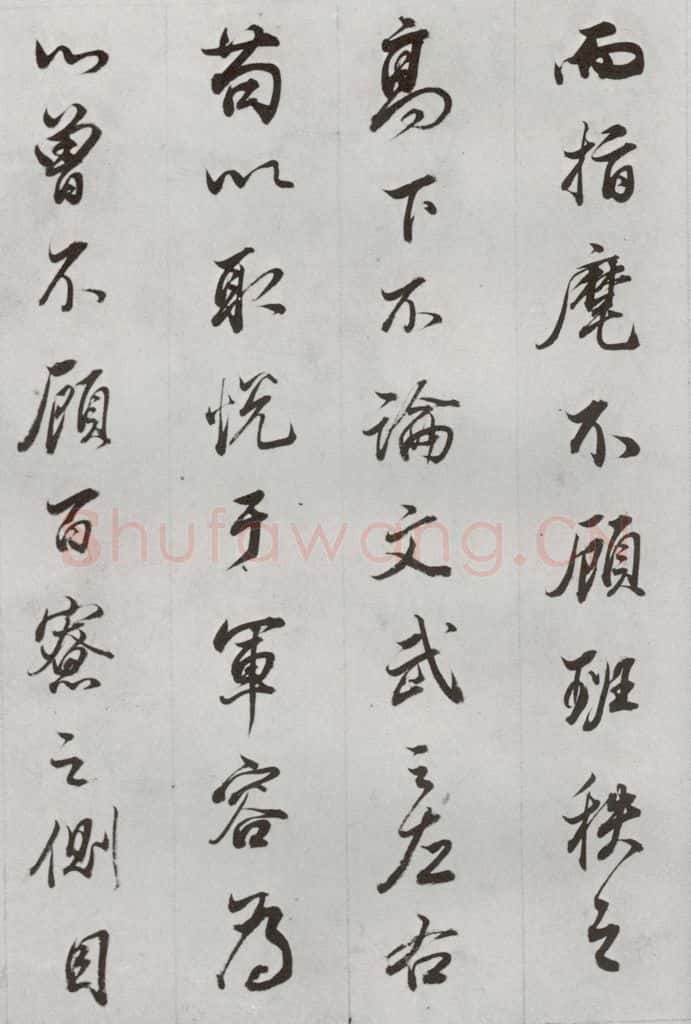 而指麾不顾班秩之
高下不論文武之左右
苟以取悦于軍容為
心曾不顾百寮之側目
Shufawang.CN